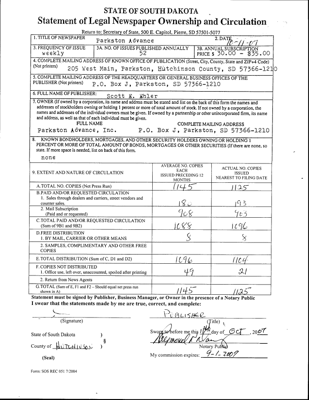 STATE OF SOUTH DAKOTA
Statement of Legal Newspaper Ownership and Circulation
Return to: Secretary of State, 500 E. Capitol, Pierre, SD 57501-5077
1. TITLE OF NEWSPAPER
Parkston Advance
2. DATE
3. FREQUENCY OF ISSUE
weekly
3A. NO. OF ISSUES PUBLISHED ANNUALLY
52
3B. ANNUAL SUBSCRIPTION
PRICE $ 30.00 - $35.00
4. COMPLETE MAILING ADDRESS OF KNOWN OFFICE OF PUBLICATION (Street, City, County, State and ZIP+4 Code)
(Not printers) 205 West Main, Parkston, Hutchinson County, SD 57366-1210
5. COMPLETE MAILING ADDRESS OF THE HEADQUARTERS OR GENERAL BUSINESS OFFICES OF THE
PUBLISHER (Not printers) P.O. Box J, Parkston, SD 57366-1210
6. FULL NAME OF PUBLISHER:
Scott E. Ehler
7. OWNER (If owned by a corporation, its name and address must be stated and list on the back of this form the names and
addresses of stockholders owning or holding 1 percent or more of total amount of stock. If not owned by a corporation, the
names and addresses of the individual owners must be given. If owned by a partnership or other unincorporated firm, its name
and address, as well as that of each individual must be given.
FULL NAME
COMPLETE MAILING ADDRESS
Parkston Advance, Inc.
P.O. Box J, Parkston, SD 57366-1210
8. KNOWN BONDHOLDERS, MORTGAGES, AND OTHER SECURITY HOLDERS OWNING OR HOLDING 1
PERCENT OR MORE OF TOTAL AMOUNT OF BONDS, MORTGAGES OR OTHER SECURITIES (If there are none, so
state. If more space is needed, list on back of this form.
none
9. EXTENT AND NATURE OF CIRCULATION
AVERAGE NO. COPIES
EACH
ISSUED PRECEDING 12
MONTHS
ACTUAL NO. COPIES
ISSUED
NEAREST TO FILING DATE
A. TOTAL NO. COPIES (Net Press Run)
1145
1125
B. PAID AND/OR REQUESTED CIRCULATION
1. Sales through dealers and carriers, street vendors and
counter sales.
193
2. Mail Subscription
(Paid and or requested)
C. TOTAL PAID AND/OR REQUESTED CIRCULATION
(Sum of 9B1 and 9B2)
1088
1096
D. FREE DISTRIBUTION
1. BY MAIL, CARRIER OR OTHER MEANS
8
8
2. SAMPLES, COMPLIMENTARY AND OTHER FREE
COPIES
E. TOTAL DISTRIBUTION (Sum of C, D1 and D2)
1096
1104
F. COPIES NOT DISTRIBUTED
1. Office use, left over, unaccounted, spoiled after printing
49
21
2. Return from News Agents
G. TOTAL (Sum of E, F1 and F2 – Should equal net press run
shown in A)
1145
1125
Statement must be signed by Publisher, Business Manager, or Owner in the presence of a Notary Public
I swear that the statements made by me are true, correct, and complete:
PUBLISHER
(Signature)
(Title)
State of South Dakota )
§
County of HUTCHINSON )
(Seal)
Sworn to before me this day of Oct, 2007
Notary Public
My commission expires: 9-1-2009
Form: SOS REC 051 7/2004